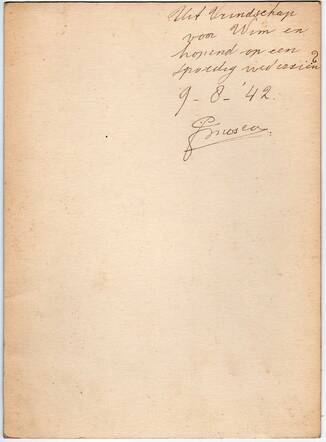 Uit Vriendschap
voor Wim en
hopend op een
spoedig wederziens
9 - 8 - '42.